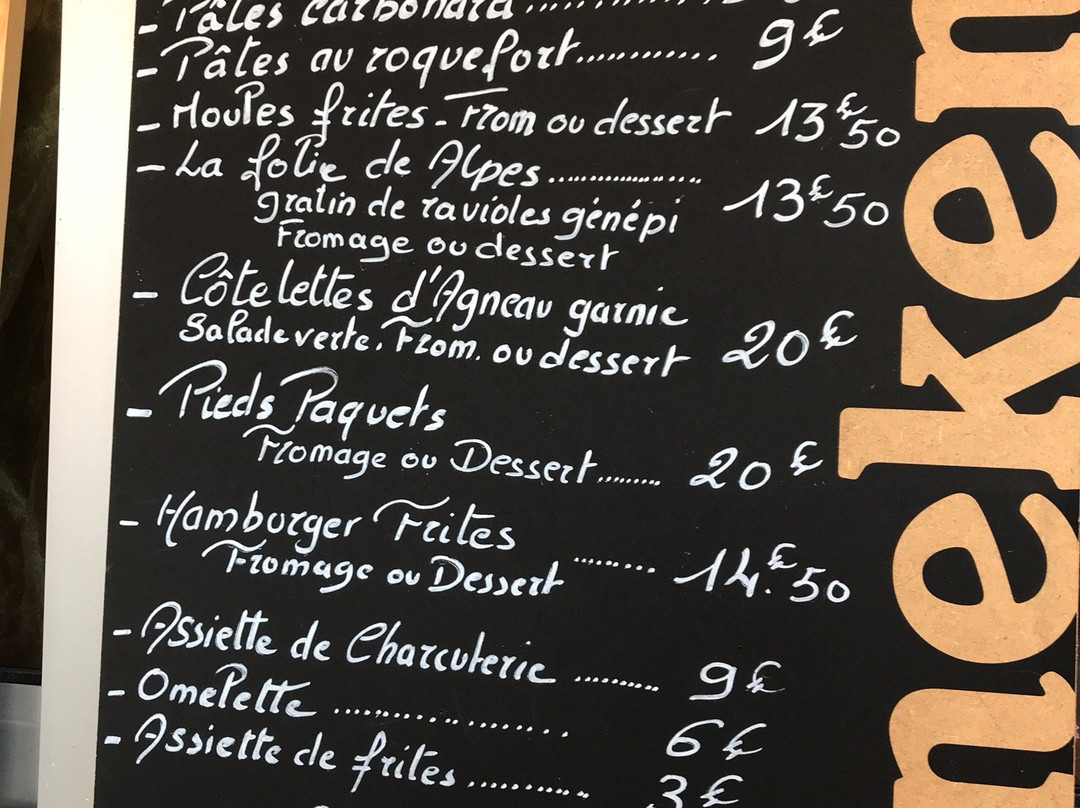 - Pâtes carbonara ..............
- Pâtes au roquefort............ 9€
- Moules frites - From ou dessert 13€50
- La folie de Alpes.................. 13€50
gratin de ravioles génépi
Fromage ou dessert
- Côtelettes d'Agneau garnie
Salade verte, From. ou dessert 20€
- Pieds Paquets
Fromage ou Dessert......... 20€
- Hamburger Frites
Fromage ou Dessert ......... 14.€50
- Assiette de Charcuterie .......... 9€
- Omelette .................... 6€
- Assiette de frites ............ 3€
neken